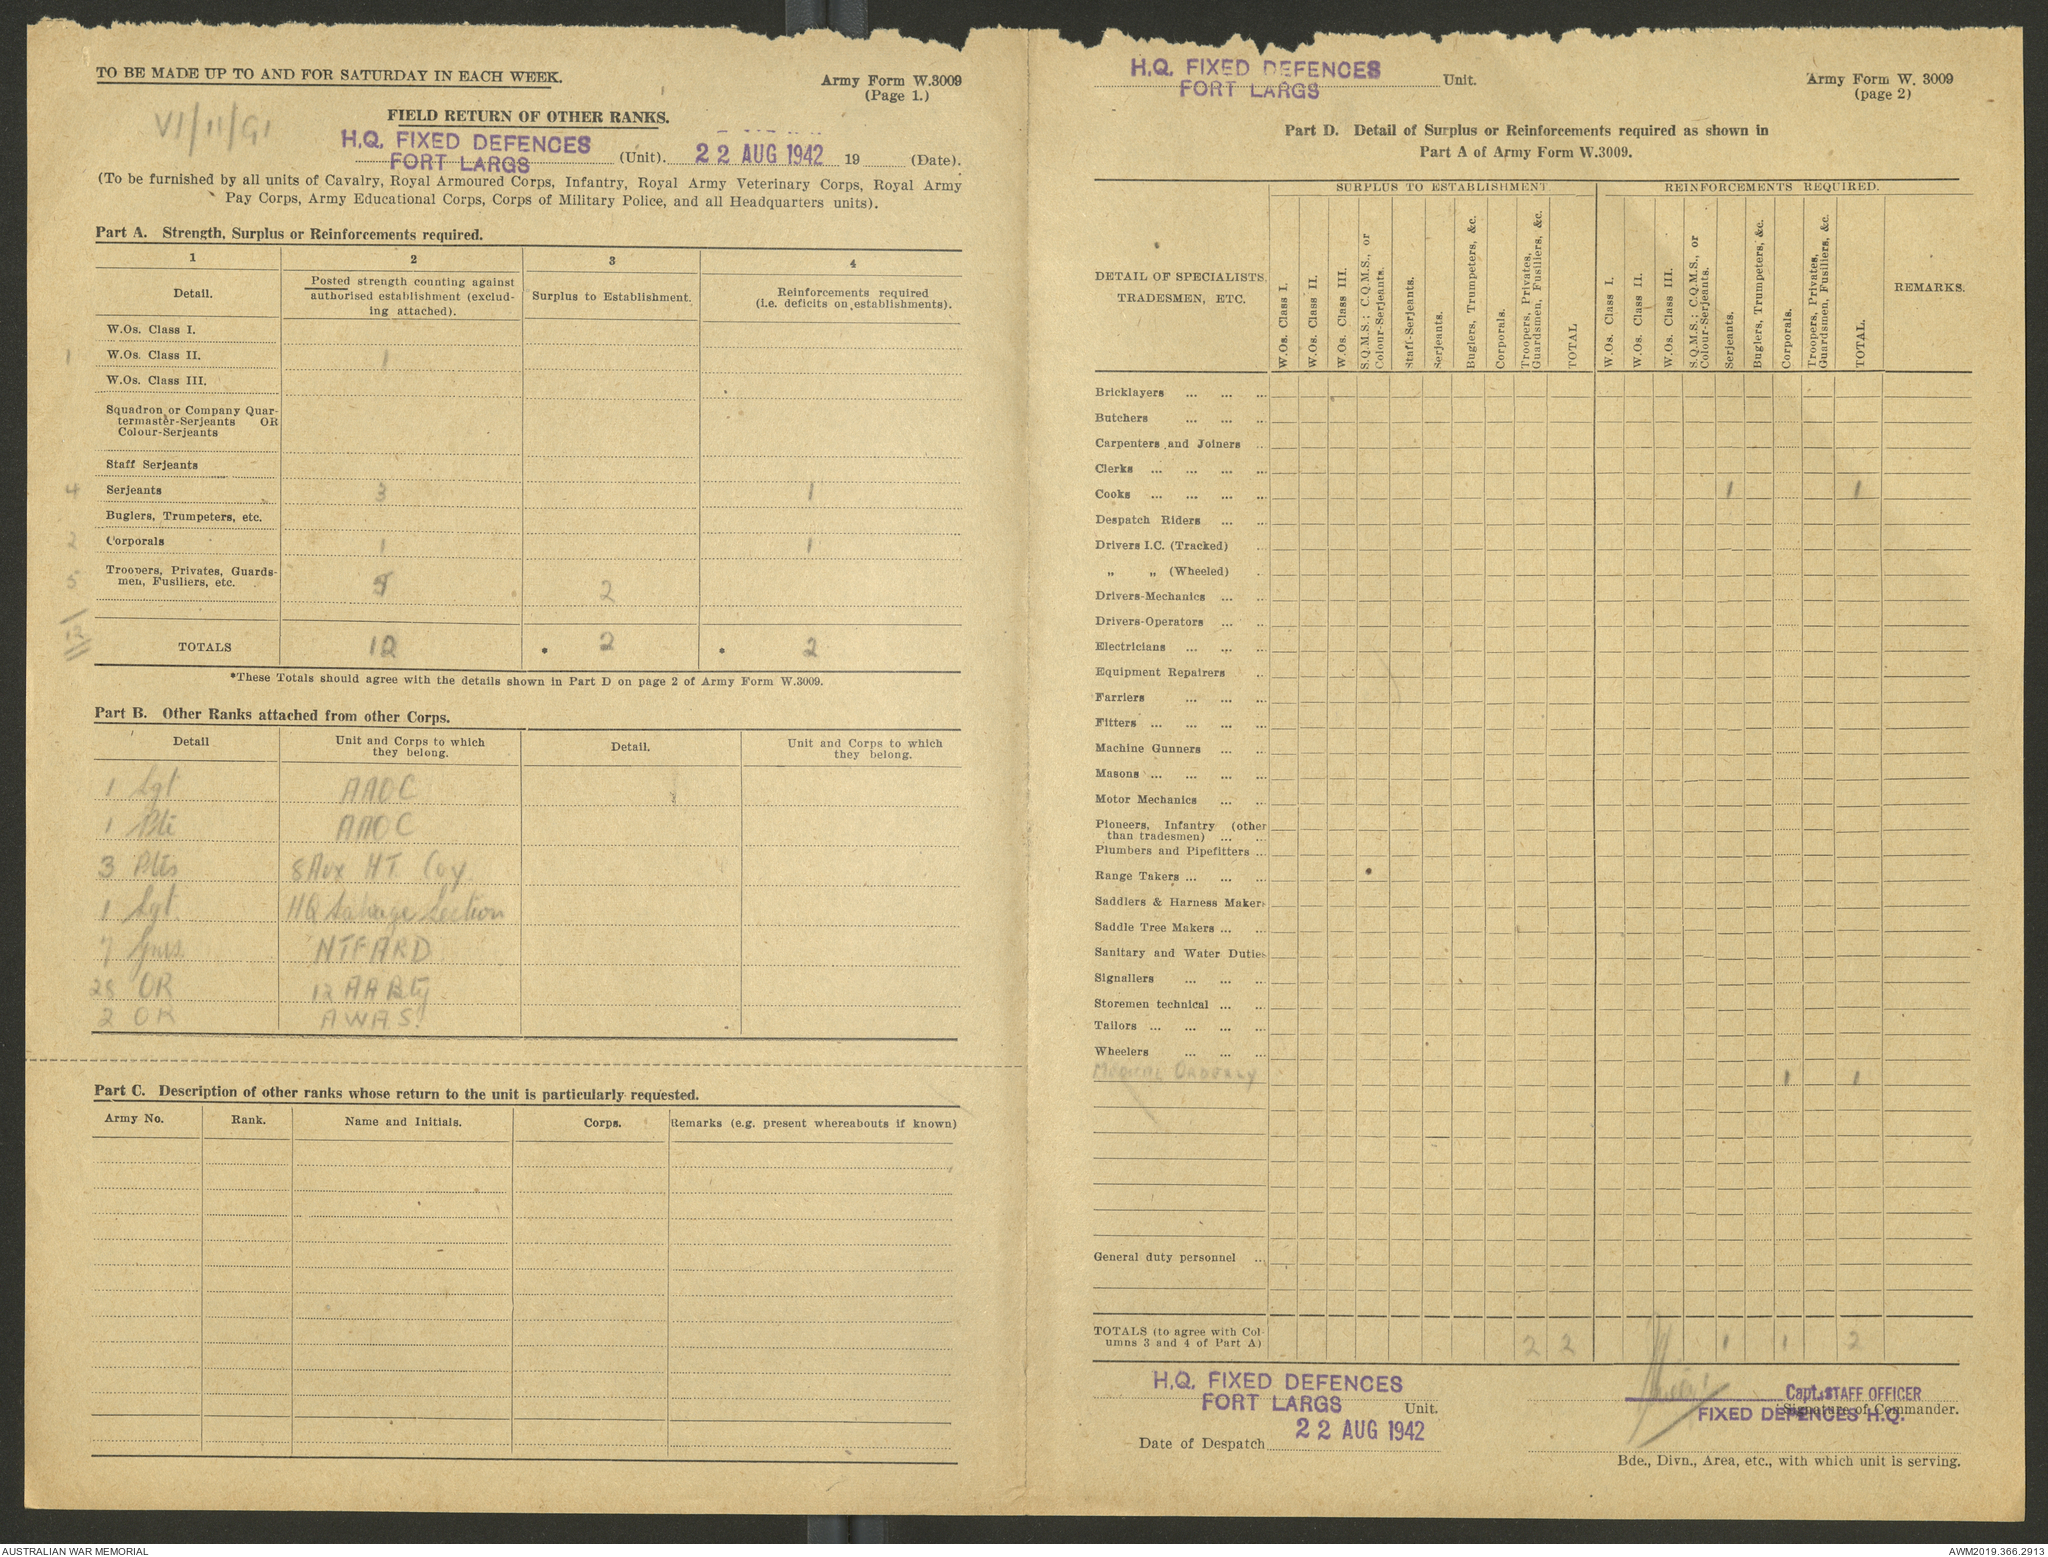 TO BE MADE UP TO AND FOR SATURDAY IN EACH WEEK.
Army Form W.3009
(Page 1.)
VI/11/G1
FIELD RETURN OF OTHER RANKS.
H.Q. FIXED DEFENCES
FORT LARGS
(Unit). 22 AUG 1942 19 (Date).
(To be furnished by all units of Cavalry, Royal Armoured Corps, Infantry, Royal Army Veterinary Corps, Royal Army
Pay Corps, Army Educational Corps, Corps of Military Police, and all Headquarters units).
Part A. Strength, Surplus or Reinforcements required.
1 2 3 4
Detail.
Posted strength counting against
authorised establishment (exclud-
ing attached).
Surplus to Establishment.
Reinforcements required
(i.e. deficits on establishments).
W.Os. Class I.
1 W.Os. Class II. 1
W.Os. Class III.
Squadron or Company Quar-
termaster-Serjeants OR
Colour-Serjeants
Staff Serjeants
4 Serjeants 3 1
Buglers, Trumpeters, etc.
2 Corporals 1 1
Troopers, Privates, Guards-
5 men, Fusiliers, etc. 2
12 TOTALS 12 * 2 * 2
*These Totals should agree with the details shown in Part D on page 2 of Army Form W.3009.
Part B. Other Ranks attached from other Corps.
Detail
Unit and Corps to which
they belong.
Detail.
Unit and Corps to which
they belong.
1 Sgt AAOC
1 Pte AAOC
3 Ptes 8 Aux HT. Coy
1 Sgt HQ Salvage Section
7 Gnrs NTFARD
28 OR 12 AA Bty
2 OR A.W.A.S.
Part C. Description of other ranks whose return to the unit is particularly requested.
Army No. Rank. Name and Initials. Corps. Remarks (e.g. present whereabouts if known)
H.Q. FIXED DEFENCES
FORT LARGS
Unit.
Army Form W. 3009
(page 2)
Part D. Detail of Surplus or Reinforcements required as shown in
Part A of Army Form W.3009.
SURPLUS TO ESTABLISHMENT
REINFORCEMENTS REQUIRED.
DETAIL OF SPECIALISTS,
TRADESMEN, ETC.
W.Os. Class I.
W.Os. Class II.
W.Os. Class III.
S.Q.M.S.; C.Q.M.S., or
Colour-Serjeants.
Staff-Serjeants.
Serjeants.
Buglers, Trumpeters, &c.
Corporals.
Troopers, Privates,
Guardsmen, Fusiliers, &c.
TOTAL
W.Os. Class I.
W.Os. Class II.
W.Os. Class III.
S.Q.M.S.; C.Q.M.S., or
Colour-Serjeants.
Serjeants.
Buglers, Trumpeters, &c.
Corporals.
Troopers, Privates,
Guardsmen, Fusiliers, &c.
TOTAL.
REMARKS.
Bricklayers ... ... ...
Butchers ... ... ...
Carpenters and Joiners ..
Clerks ... ... ... ...
Cooks ... ... ... ... 1 1
Despatch Riders ... ...
Drivers I.C. (Tracked) ..
„ „ (Wheeled) .
Drivers-Mechanics ... ..
Drivers-Operators ... ..
Electricians ... ... ...
Equipment Repairers ..
Farriers ... ... ...
Fitters ... ... ... ...
Machine Gunners ... ...
Masons ... ... ... ...
Motor Mechanics ... ...
Pioneers, Infantry (other
than tradesmen) ... ...
Plumbers and Pipefitters ...
Range Takers ... ... ...
Saddlers & Harness Makers
Saddle Tree Makers ... ...
Sanitary and Water Duties
Signallers ... ... ...
Storemen technical ... ...
Tailors ... ... ... ...
Wheelers ... ... ...
MEDICAL ORDERLY 1 1
General duty personnel ...
TOTALS (to agree with Col-
umns 3 and 4 of Part A) 2 2 1 1 2
H.Q. FIXED DEFENCES
FORT LARGS
Unit.
Capt. STAFF OFFICER
Signature of Commander.
FIXED DEFENCES H.Q.
Date of Despatch 22 AUG 1942
Bde., Divn., Area, etc., with which unit is serving.
AUSTRALIAN WAR MEMORIAL
AWM2019.366.2913